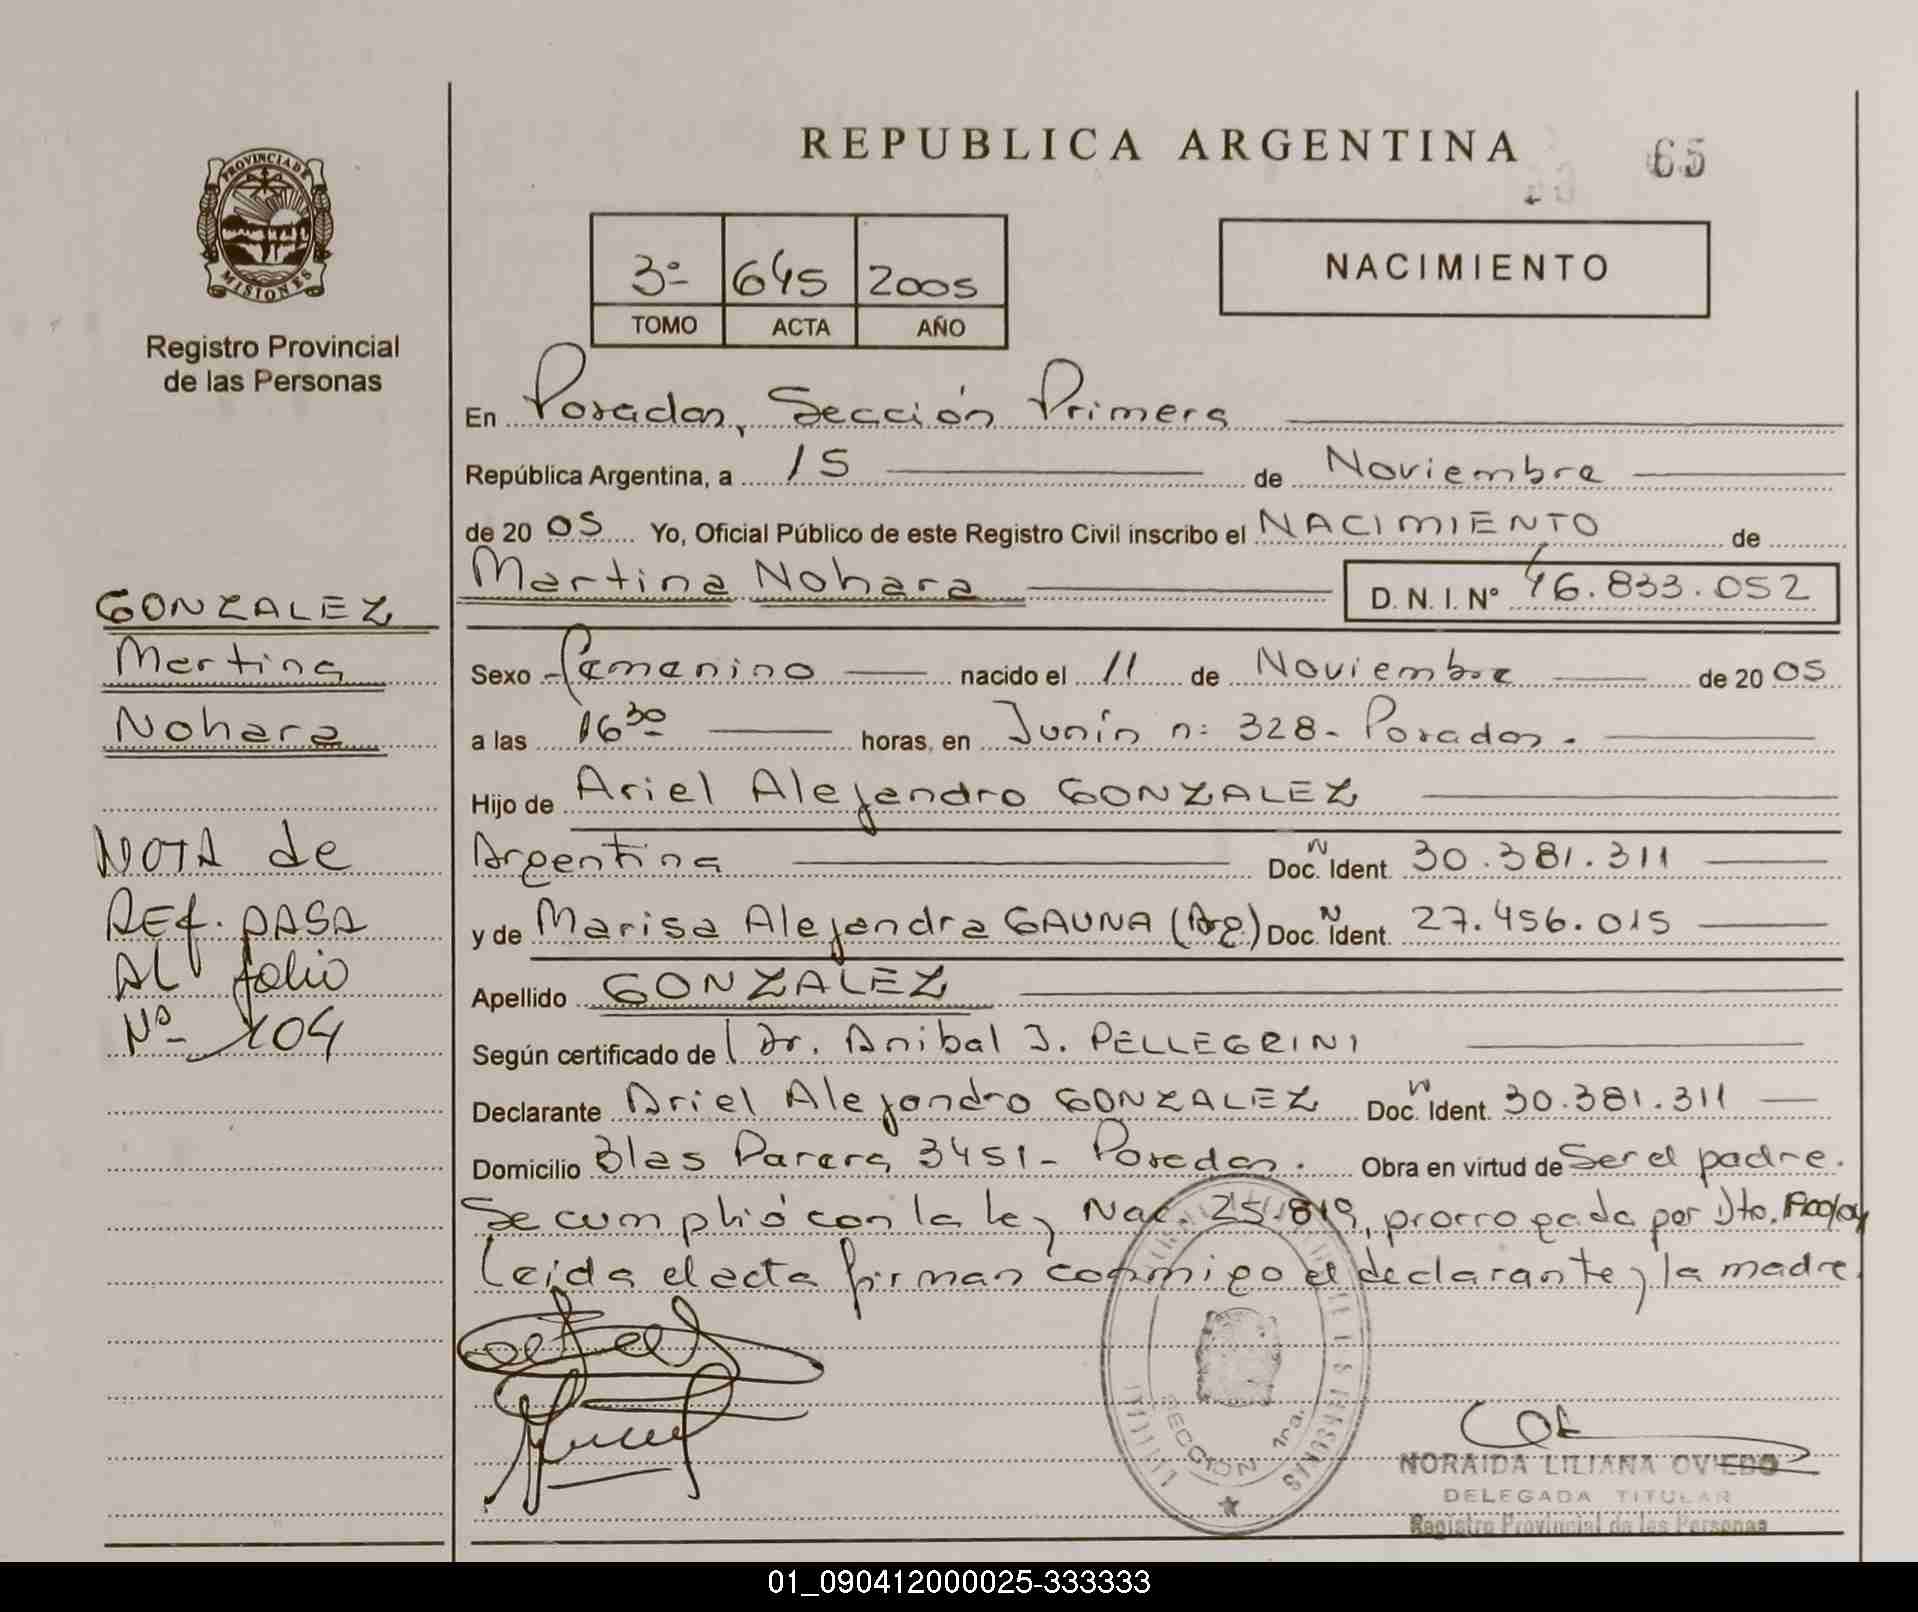 REPUBLICA ARGENTINA
65
PROVINCIA DE
MISIONES
Registro Provincial
de las Personas
3º 645 2005
TOMO ACTA AÑO
NACIMIENTO
En Posadas, Sección Primera
República Argentina, a 15 de Noviembre
de 20 05 Yo, Oficial Público de este Registro Civil inscribo el NACIMIENTO de
Martina Nohara D. N. I. Nº 46.833.052
GONZALEZ
Martina
Nohara
Sexo Femenino nacido el 11 de Noviembre de 20 05
a las 16 30 horas, en Junín n: 328- Posadas.
Hijo de Ariel Alejandro GONZALEZ
Argentina Doc. N Ident. 30.381.311
y de Marisa Alejandra GAUNA (Arg) Doc. N Ident. 27.456.015
Apellido GONZALEZ
Según certificado de Dr. Anibal J. PELLEGRINI
Declarante Ariel Alejandro GONZALEZ Doc. N Ident. 30.381.311
Domicilio Blas Parera 3451- Posadas. Obra en virtud de Ser el padre.
Se cumplió con la ley Nac. 25.819, prorrogada por Dto.
Leida el acta firman conmigo el declarante y la madre.
NOTA de
REf. PASA
AL folio
Nº 104
SECCION 1ra.
NORAIDA LILIANA OVIEDO
DELEGADA TITULAR
Registro Provincial de las Personas
01_090412000025-333333